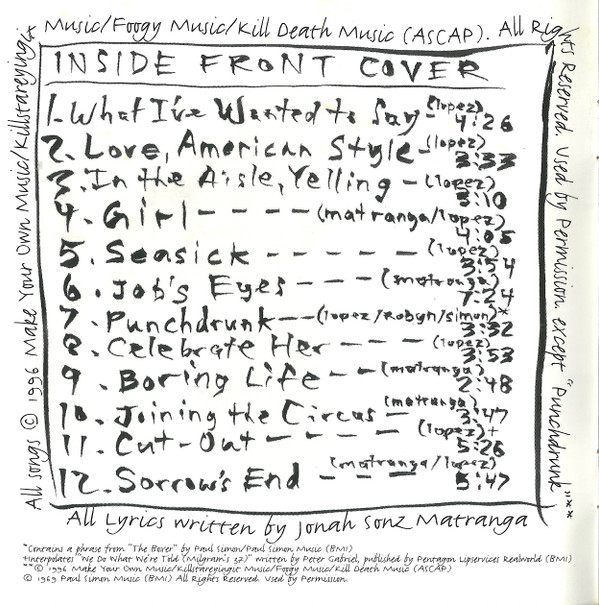 Music/Foogy Music/Kill Death Music (ASCAP). All Rights Reserved. Used by Permission. except "Punchdrunk"**
INSIDE FRONT COVER
1. What I've Wanted to Say - (lopez) 4:26
2. Love, American Style - (lopez) 3:33
3. In the Aisle, Yelling - (lopez) 3:10
4. Girl - - - - (matranga/lopez) 4:05
5. Seasick - - - - - (lopez) 3:54
6. Job's Eyes - - - - (matranga) 7:24
7. Punchdrunk - - (lopez/Robyn/simon)* 3:32
8. Celebrate Her - - - - (lopez) 3:53
9. Boring Life - - - (matranga) 2:48
10. Joining the Circus - (matranga) 3:47
11. Cut-Out - - - - - (lopez)+ 5:26
12. Sorrow's End - - - (matranga/lopez) 5:47
All songs © 1996 Make Your Own Music/Killstareyingit
All Lyrics written by Jonah Sonz Matranga
*Contains a phrase from "The Boxer" by Paul Simon/Paul Simon Music (BMI)
+Interpolates "We Do What We're Told (Milgram's 37)" written by Peter Gabriel, published by Pentagon Lipservices Realworld (BMI)
** © 1996 Make Your Own Music/Killstareyingit Music/Foogy Music/Kill Death Music (ASCAP)
© 1969 Paul Simon Music (BMI) All Rights Reserved. Used by Permission.